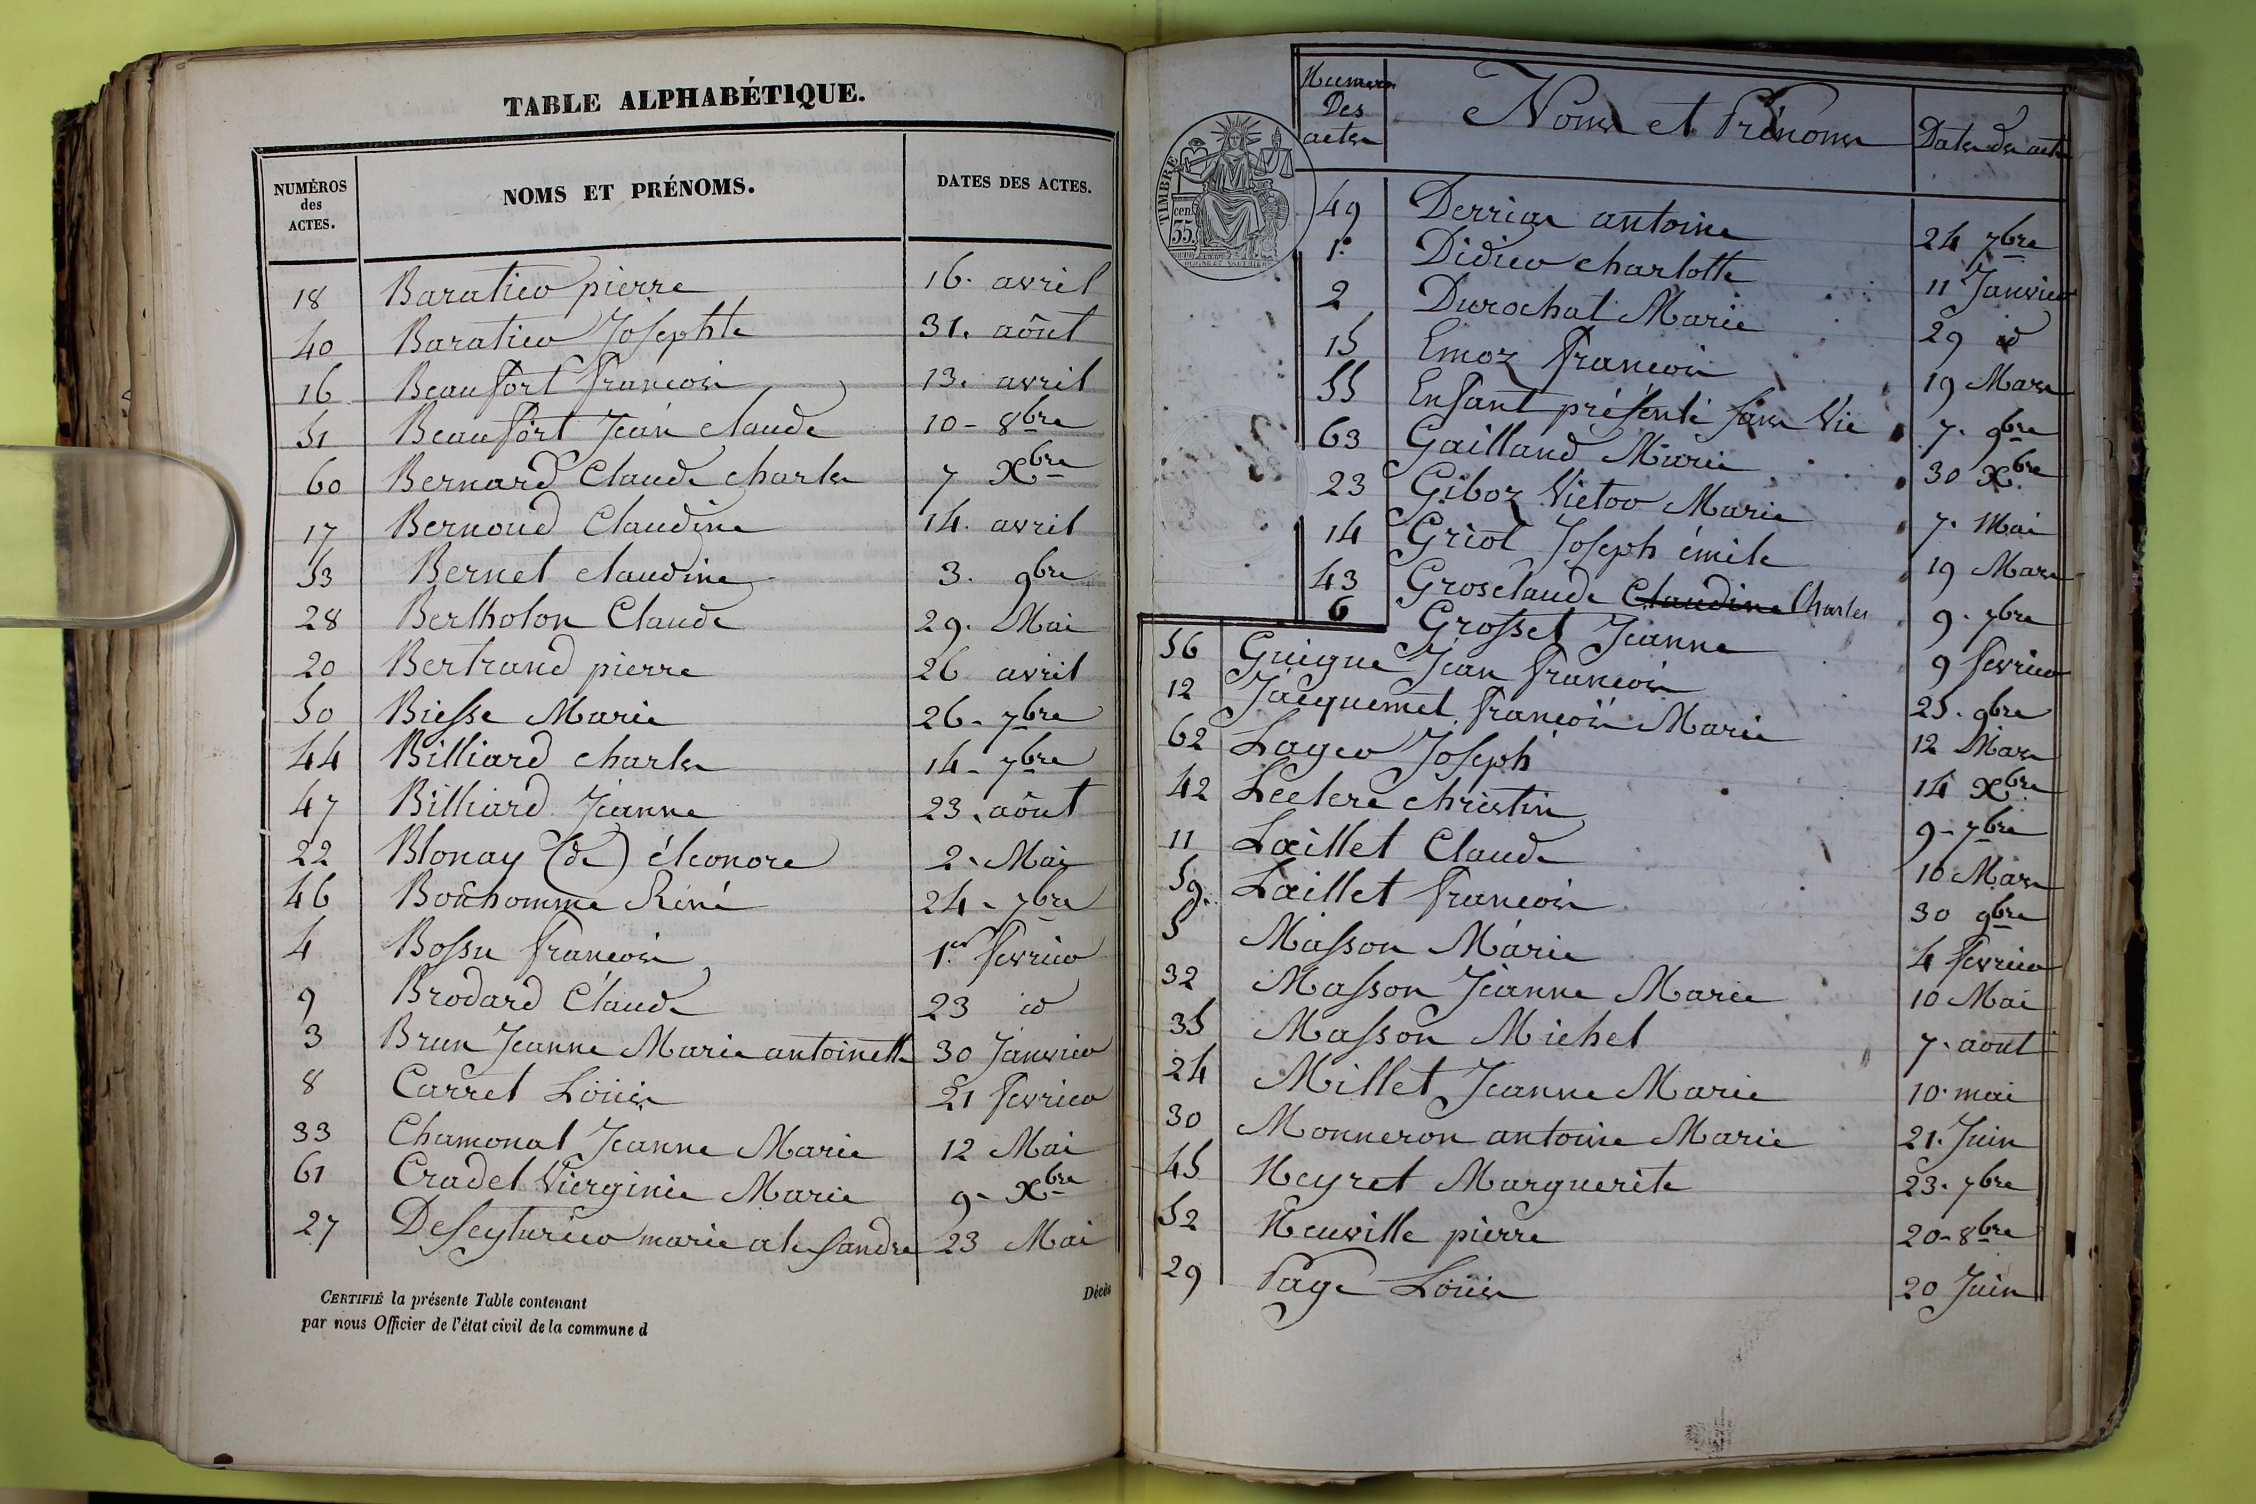 TABLE ALPHABÉTIQUE.
NUMÉROS des ACTES. NOMS ET PRÉNOMS. DATES DES ACTES.
18 Baratier pierre 16. avril
40 Baratier Josephte 31. aôut
16 Beaufort françois 13. avril
51 Beaufort Jean claude 10 - 8bre
60 Bernard Claude charles 7 Xbre
17 Bernoud Claudine 14. avril
53 Bernet claudine 3. 9bre
28 Bertholon Claude 29. Mai
20 Bertrand pierre 26 avril
50 Biesse Marie 26 - 7bre
44 Billiard charles 14 - 7bre
47 Billiard Jeanne 23. aôut
22 Blonay (de) éléonore 2. Mai
46 Bonhomme Réné 24 - 7bre
4 Bossu françois 1er fevrier
9 Brodard Claude 23 id
3 Brun Jeanne Marie antoinette 30 Janvier
8 Carret Louis 21 fevrier
33 Chamonal Jeanne Marie 12 Mai
61 Cradel Vierginie Marie 9 - Xbre
27 Deseyturier marie alesandre 23 Mai
CERTIFIÉ la présente Table contenant Décès
par nous Officier de l'état civil de la commune d
Numeros Des actes Noms et Prénoms Dates des actes
TIMBRE
cen.
55.
49 Derrias antoine 24 7bre
1. Didier charlotte 11 Janvier
2 Durochat Marie 29 id
15 Emoz françois 19 Mars
55 Enfant présenté sans Vie 7. 9bre
63 Gailland Marie 30 Xbre
23 Giboz Victor Marie 7. Mai
14 Griot Joseph émile 19 Mars
43 Grosclaude Claudine Charles 9. 7bre
6 Grosset Jeanne 9 fevrier
56 Guigue Jean françois 25. 9bre
12 Jacquemet françois Marie 12 Mars
62 Lager Joseph 14 Xbre
42 Leclerc christin 9 - 7bre
11 Laillet Claude 10 Mars
59. Laillet françois 30 9bre
5 Masson Marie 4 fevrier
32 Masson Jeanne Marie 10 Mai
35 Masson Michel 7. aout
24 Millet Jeanne Marie 10. mai
30 Monneron antoine Marie 21. Juin
45 Neyret Marguerite 23. 7bre
52 Neuville pierre 20 - 8bre
29 Page Louis 20 Juin